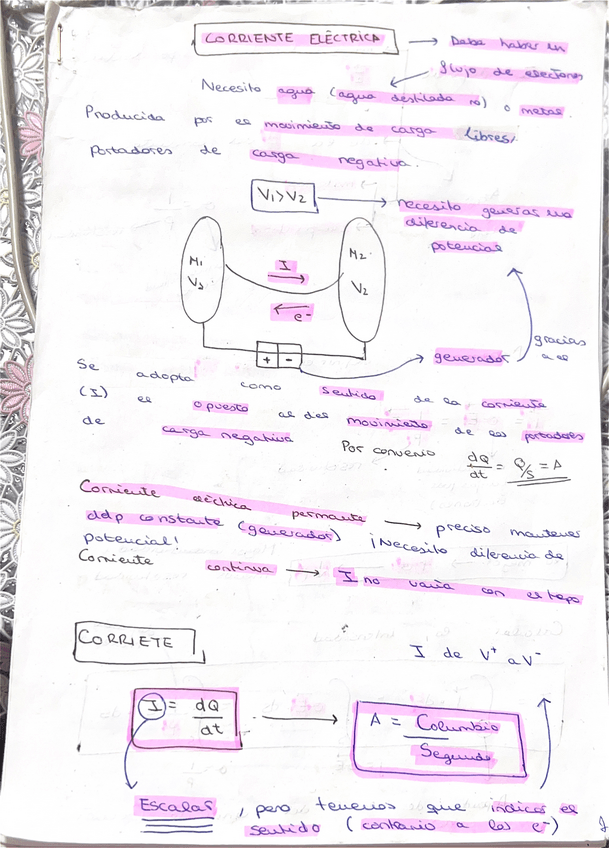 CORRIENTE ELÉCTRICA → Debe haber un
flujo de electrones
Necesito agua (agua destilada no) o metal.
Producida por el movimiento de carga libres/
Portadores de carga negativa.
V₁>V₂ → necesito generar una
diferencia de
potencial
M₁ M₂
I
V₂
e⁻
+ - → generador
gracias
a el
Se adopta como sentido de la corriente
(I) el opuesto al del movimiento de los portadores
de carga negativa
Por convenio dQ/dt = Q/s = A
Corriente eléctrica permante → preciso mantener
ddp constante (generador) ¡Necesito diferencia de
potencial!
Corriente continua → I no varía con el tepo
CORRIETE
I de V⁺ a V⁻
I = dQ/dt → A = Columbio/Segundo
Escalar, pero tenemos que indicar el
sentido (contrario a los e⁻)